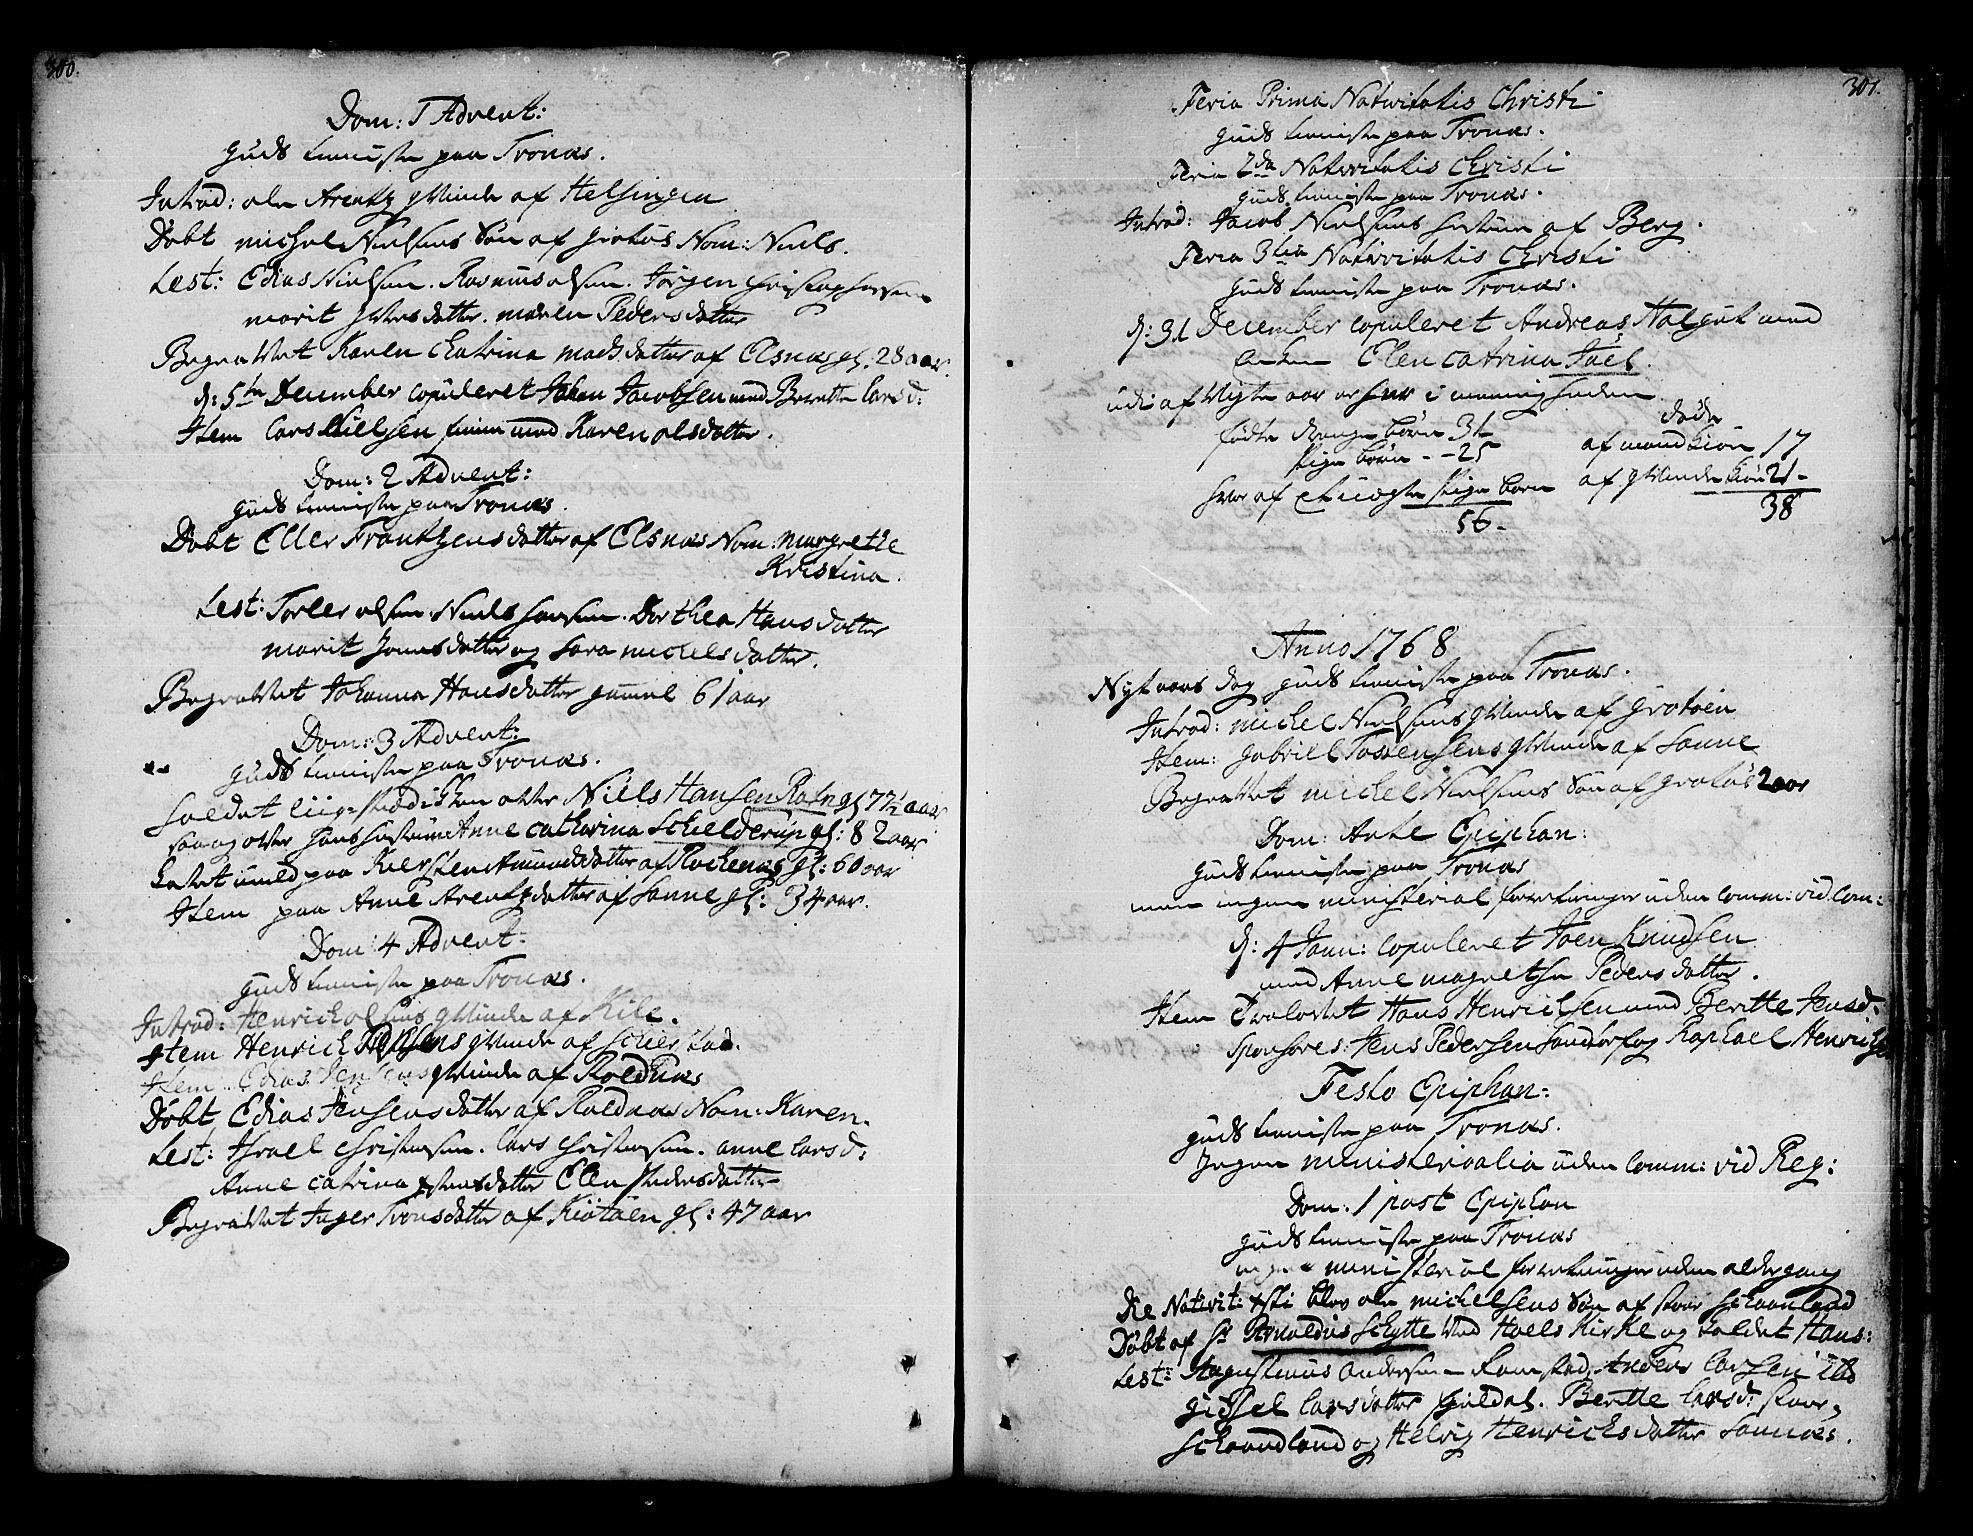 300.
Dom: 1 Advent:
Guds tieniste paa Tronæs.
Introd: ole Arentz qvinde af Helsingen
Døbt michel Nielsens Søn af grotøe Nom: Niels.
Lest: Edias Nielsen. Rasmus olsen. Jørgen Christophersen
marit Iversdatter. maren Pedersdatter
Begravet Karen Catrina madsdatter af Elsnæs gl. 28 aar.
d: 5te December copuleret Johan Jacobsen med Berette Larsd:
Item Lars Nielsen finn med Karen olsdatter.
Dom: 2 Advent:
Guds tieniste paa Tronæs.
Døbt Eller Frantzens datter af Elsnæs Nom: Margrethe
Kristina.
Lest: Torler olsen. Niels hansen. Dorthea Hansdatter
marit Jonsdatter og Sara michelsdatter.
Begravet Johanna Hansdatter gammel 61 aar
Dom: 3 Advent:
Guds tieniste paa Tronæs.
holdet liig-prædiken over Niels Hansen Ravn gl 77½ aar
saa og over hans hustrue Anne Catharina Schielderup gl: 82 aar
kastet muld paa Kiersten Amundsdatter af Rochenæs gl: 60 aar
Item paa Anne Arentzdatter af Sanne gl: 34 aar.
Dom: 4 Advent:
Guds tieniste paa Tronæs.
Introd: Henrich olsens qvinde af Kile.
Item Henrich qvinde af Schierstad.
Item Edias Jensens qvinde af Roldnæs
Døbt Edias Jensens datter af Roldnæs Nom: Karen.
Lest: Israel Christensen. Lars Christensen. Anne Larsd:
Anne Catrina datter Elen Pedersdatter
Begravet Inger Tronsdatter af Kiøtøen gl: 47 aar
301.
Feria Prima Nativitatis Christi
Guds tieniste paa Tronæs.
Feria 2da Nativitatis Christi
Guds tieniste paa Tronæs.
Introd: Jacob Nielsens hustrue af Berg.
Feria 3tia Nativitatis Christi
Guds tieniste paa Tronæs.
d: 31 December copuleret Andreas Nalgut med
enken Elen Catrina Juel.
udi afvigte aar er her i menigheden
fødte drenge børn 31
pige børn - - 25
hvor af pige børn
56 -
døde
af mandkiøn 17
af qvindekiøn 21 -
38
Anno 1768
Nytaars dag Guds tieniste paa Tronæs.
Introd: michel Nielsens qvinde af grotøen
Item: Gabriel Tostensens qvinde af Sanne
Begravet michel Nielsens Søn af grotøe 2 aar
Dom: Ante Epiphan:
Guds tieniste paa Tronæs
men ingen ministerial forretninger uden comm: vid. Com:
d: 4 Janu: copuleret Joen Knudsen
med Anne magrethe Pedersdatter.
Item Trolovet Hans Henrichsen med Berette Jensd.
Sponsores: Jens Pedersen Sandtorf og Raphael Henrichs
Festo Epiphan:
Guds tieniste paa Tronæs.
Ingen ministerialia uden Comm: vid Reg:
Dom: 1 post Epiphan
Guds tieniste paa Tronæs
ingen ministerial forretninger uden altergang
Die Nativit: Xsti blev ole michelsens Søn af stoor Schaanland
Døbt af Hr Arnoldus Schytte ved Hoels Kirke og kaldet Hans:
Lest: Augustinus Andersen Ramstad, Anders Larsen
Gidsel Larsdatter Fieldal. Berette Larsd: stoor,
Schaandland og Helvig Henrichsdatter Sannæs.